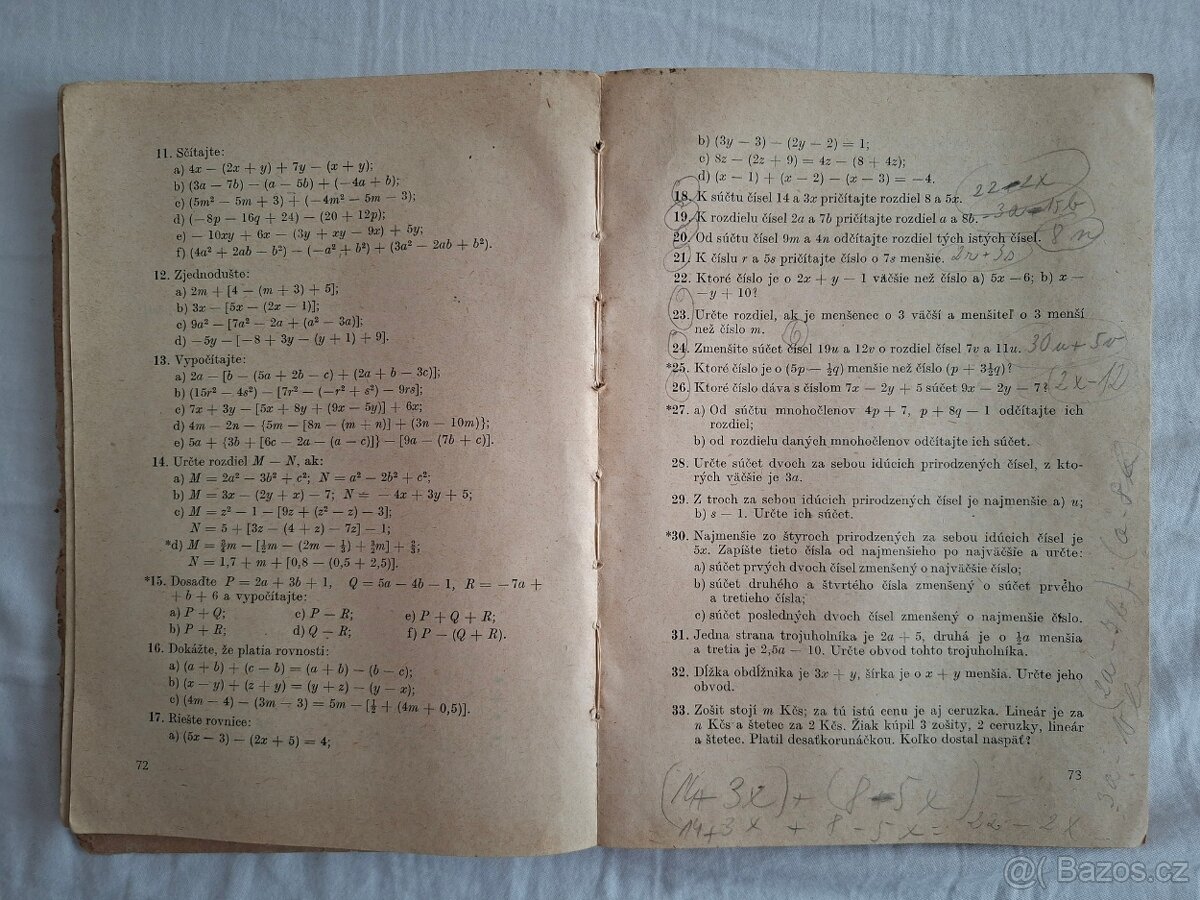 11. Sčítajte:
a) 4x — (2x + y) + 7y — (x + y);
b) (3a — 7b) — (a — 5b) + (—4a + b);
c) (5m² — 5m + 3) + (—4m² — 5m — 3);
d) (—8p — 16q + 24) — (20 + 12p);
e) — 10xy + 6x — (3y + xy — 9x) + 5y;
f) (4a² + 2ab — b²) — (—a² + b²) + (3a² — 2ab + b²).
12. Zjednodušte:
a) 2m + [4 — (m + 3) + 5];
b) 3x — [5x — (2x — 1)];
c) 9a² — [7a² — 2a + (a² — 3a)];
d) —5y — [—8 + 3y — (y + 1) + 9].
13. Vypočítajte:
a) 2a — [b — (5a + 2b — c) + (2a + b — 3c)];
b) (15r² — 4s²) — [7r² — (—r² + s²) — 9rs];
c) 7x + 3y — [5x + 8y + (9x — 5y)] + 6x;
d) 4m — 2n — {5m — [8n — (m + n)] + (3n — 10m)};
e) 5a + {3b + [6c — 2a — (a — c)]} — [9a — (7b + c)].
14. Určte rozdiel M — N, ak:
a) M = 2a² — 3b² + c²; N = a² — 2b² + c²;
b) M = 3x — (2y + x) — 7; N = — 4x + 3y + 5;
c) M = z² — 1 — [9z + (z² — z) — 3];
N = 5 + [3z — (4 + z) — 7z] — 1;
*d) M = ¾m — [½m — (2m — ⅓) + ¾m] + ⅔;
N = 1,7 + m + [0,8 — (0,5 + 2,5)].
*15. Dosaďte P = 2a + 3b + 1, Q = 5a — 4b — 1, R = —7a +
+ b + 6 a vypočítajte:
a) P + Q; c) P — R; e) P + Q + R;
b) P + R; d) Q — R; f) P — (Q + R).
16. Dokážte, že platia rovnosti:
a) (a + b) + (c — b) = (a + b) — (b — c);
b) (x — y) + (z + y) = (y + z) — (y — x);
c) (4m — 4) — (3m — 3) = 5m — [½ + (4m + 0,5)].
17. Riešte rovnice:
a) (5x — 3) — (2x + 5) = 4;
72
b) (3y — 3) — (2y — 2) = 1;
c) 8z — (2z + 9) = 4z — (8 + 4z);
d) (x — 1) + (x — 2) — (x — 3) = —4.
18. K súčtu čísel 14 a 3x pričítajte rozdiel 8 a 5x. 22-2x
19. K rozdielu čísel 2a a 7b pričítajte rozdiel a a 8b. 3a-15b
20. Od súčtu čísel 9m a 4n odčítajte rozdiel tých istých čísel. 8n
21. K číslu r a 5s pričítajte číslo o 7s menšie. 2r+3s
22. Ktoré číslo je o 2x + y — 1 väčšie než číslo a) 5x —6; b) x —
—y + 10?
23. Určte rozdiel, ak je menšenec o 3 väčší a menšiteľ o 3 menší
než číslo m. 6
24. Zmenšite súčet čísel 19u a 12v o rozdiel čísel 7v a 11u. 30u+5v
*25. Ktoré číslo je o (5p — ½q) menšie než číslo (p + 3½q)?
26. Ktoré číslo dáva s číslom 7x — 2y + 5 súčet 9x — 2y — 7? 2x-12
*27. a) Od súčtu mnohočlenov 4p + 7, p + 8q — 1 odčítajte ich
rozdiel;
b) od rozdielu daných mnohočlenov odčítajte ich súčet.
28. Určte súčet dvoch za sebou idúcich prirodzených čísel, z kto-
rých väčšie je 3a.
29. Z troch za sebou idúcich prirodzených čísel je najmenšie a) u;
b) s — 1. Určte ich súčet.
*30. Najmenšie zo štyroch prirodzených za sebou idúcich čísel je
5x. Zapíšte tieto čísla od najmenšieho po najväčšie a určte:
a) súčet prvých dvoch čísel zmenšený o najväčšie číslo;
b) súčet druhého a štvrtého čísla zmenšený o súčet prvého
a tretieho čísla;
c) súčet posledných dvoch čísel zmenšený o najmenšie číslo.
31. Jedna strana trojuholníka je 2a + 5, druhá je o ½a menšia
a tretia je 2,5a — 10. Určte obvod tohto trojuholníka.
32. Dĺžka obdĺžnika je 3x + y, šírka je o x + y menšia. Určte jeho
obvod.
33. Zošit stojí m Kčs; za tú istú cenu je aj ceruzka. Lineár je za
n Kčs a štetec za 2 Kčs. Žiak kúpil 3 zošity, 2 ceruzky, lineár
a štetec. Platil desaťkorunáčkou. Koľko dostal naspäť?
73
(14+3x)+(8-5x) =
14+3x + 8-5x = 22-2x
@( Bazos.cz